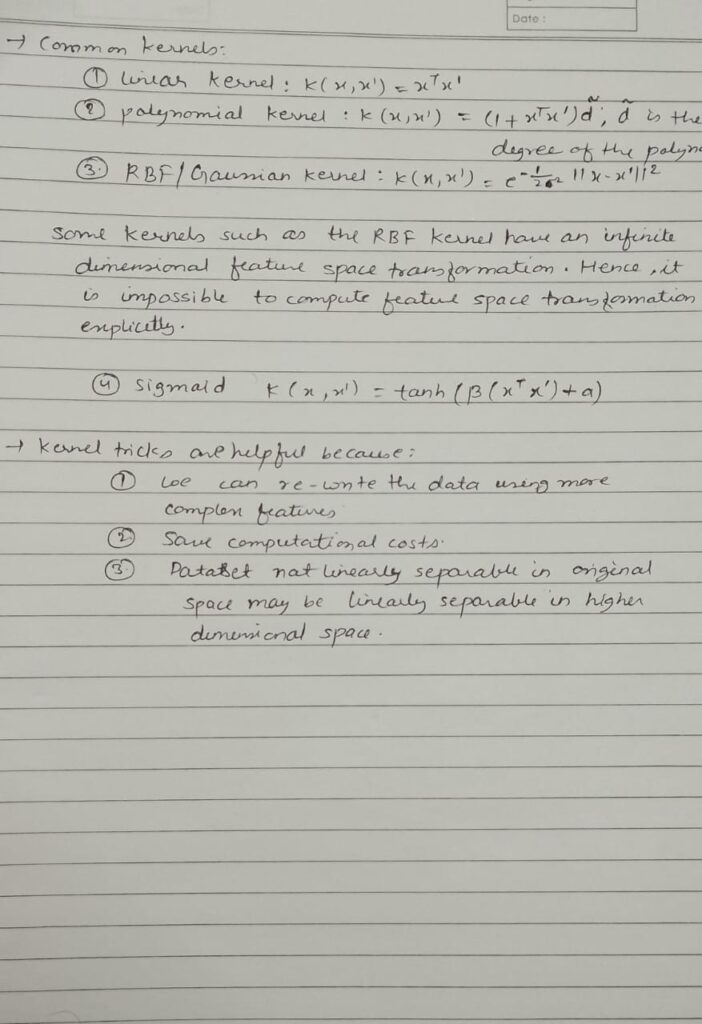 Date :
→ Common kernels:
① linear kernel : K(x,x') = xᵀx'
② polynomial kernel : K(x,x') = (1+xᵀx')d̃, d̃ is the
degree of the polyno
③. RBF/Gaussian kernel : K(x,x') = e^(-1/2σ² ||x-x'||²)
Some kernels such as the RBF kernel have an infinite
dimensional feature space transformation. Hence, it
is impossible to compute feature space transformation
explicetly.
④ Sigmoid K(x,x') = tanh(β(xᵀx')+a)
→ Kernel tricks are helpful because:
① we can re-write the data using more
complex features
② Save computational costs.
③. Dataset not linearly separable in original
space may be linearly separable in higher
dimensional space.